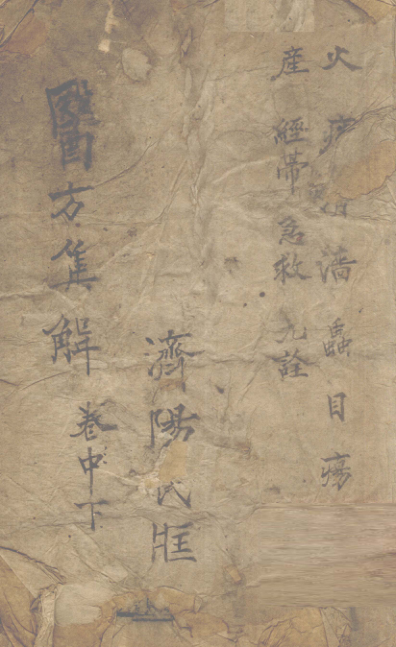 火 痰 消 蟲 目 瘍
產 經帶 急救 九詮
濟陽氏
醫方集解 卷中下